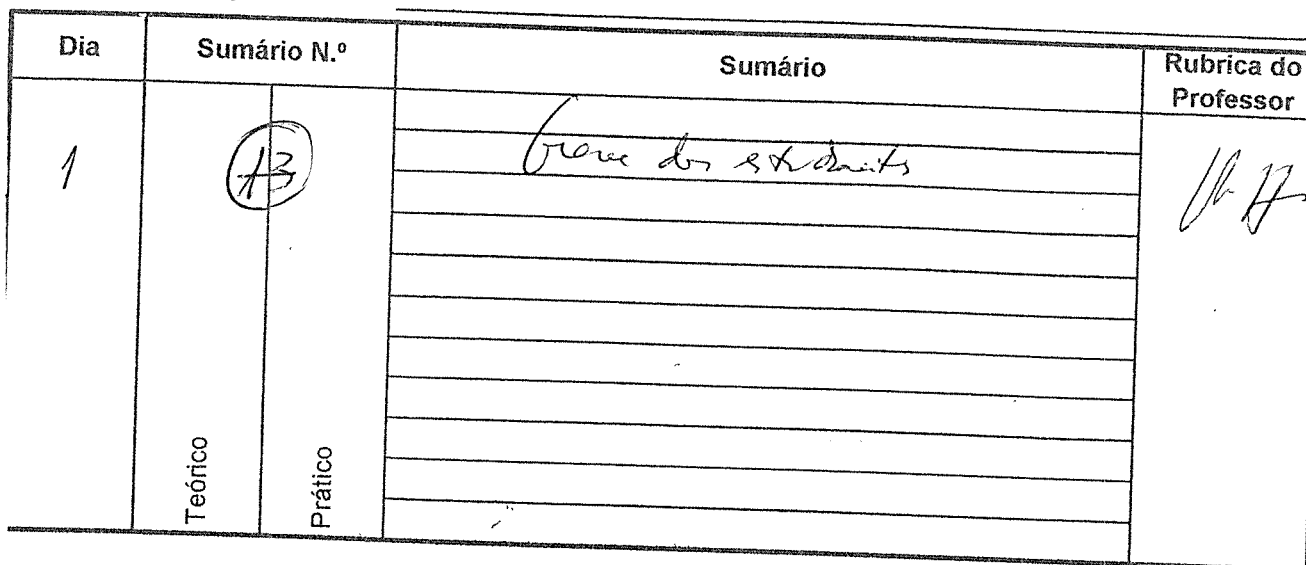 Dia Sumário N.º Sumário Rubrica do Professor
1 13 Greve dos estudantes
Teórico Prático